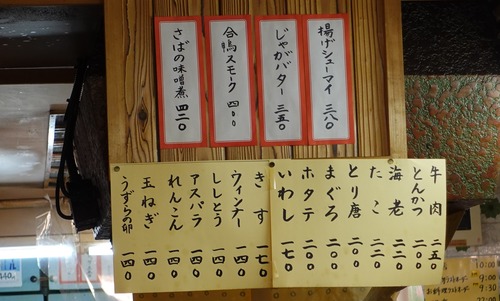 揚げシューマイ 三八〇
じゃがバター 三五〇
合鴨スモーク 四〇〇
さばの味噌煮 四二〇
牛肉 二五〇
とんかつ 二〇〇
海老 二二〇
たこ 二二〇
とり唐 二〇〇
まぐろ 二〇〇
ホタテ 二〇〇
いわし 一七〇
きす 一七〇
ウィンナー 一四〇
ししとう 一四〇
アスパラ 一四〇
れんこん 一四〇
玉ねぎ 一四〇
うずらの卵 一四〇
10:00
9:00
9:30